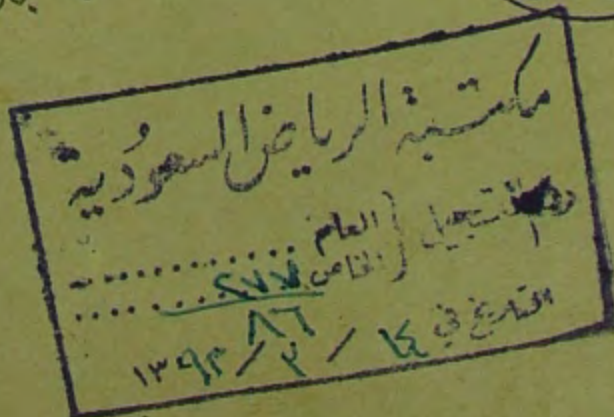 مكتبة الرياض السعودية
رقم التسجيل { العام ............
الخاص ٢٧٧ ............
٨٦
التاريخ في ١٤ / ٢ / ١٣٩٢